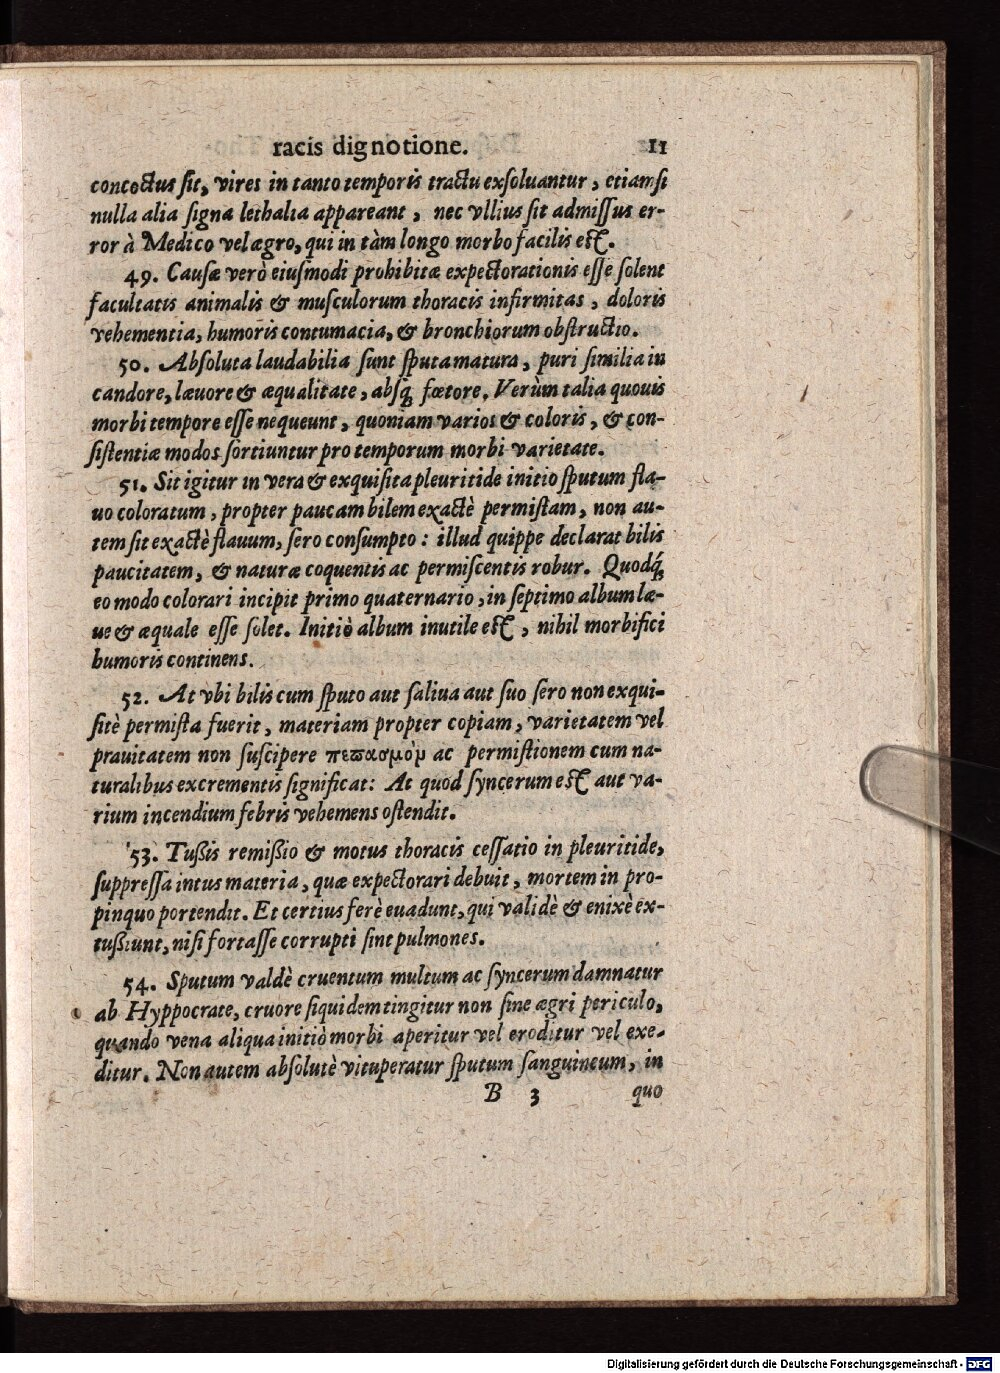 racis dignotione. 11
concoctus ſit, vires in tanto temporis tractu exſoluantur, etiamſi
nulla alia ſigna lethalia appareant, nec vllius ſit admiſſus er-
ror à Medico vel ægro, qui in tàm longo morbo facilis eſt.
49. Cauſæ verò eiuſmodi prohibitæ expectorationis eſſe ſolent
facultatis animalis & muſculorum thoracis infirmitas, doloris
vehementia, humoris contumacia, & bronchiorum obſtructio.
50. Abſoluta laudabilia ſunt ſputa matura, puri ſimilia in
candore, læuore & æqualitate, abſq; fœtore. Verùm talia quouis
morbi tempore eſſe nequeunt, quoniam varios & coloris, & con-
ſiſtentiæ modos ſortiuntur pro temporum morbi varietate.
51. Sit igitur in vera & exquiſita pleuritide initio ſputum fla-
uo coloratum, propter paucam bilem exactè permiſtam, non au-
tem ſit exactè flauum, ſero conſumpto: illud quippe declarat bilis
paucitatem, & naturæ coquentis ac permiſcentis robur. Quodq́;
eo modo colorari incipit primo quaternario, in ſeptimo album læ-
ue & æquale eſſe ſolet. Initiò album inutile eſt, nihil morbifici
humoris continens.
52. At vbi bilis cum ſputo aut ſaliua aut ſuo ſero non exqui-
ſitè permiſta fuerit, materiam propter copiam, varietatem vel
prauitatem non ſuſcipere πεπασμὸμ ac permiſtionem cum na-
turalibus excrementis ſignificat: At quod ſyncerum eſt aut va-
rium incendium febris vehemens oſtendit.
53. Tußis remißio & motus thoracis ceſſatio in pleuritide,
ſuppreſſa intus materia, quæ expectorari debuit, mortem in pro-
pinquo portendit. Et certius ferè euadunt, qui validè & enixè ex-
tußiunt, niſi fortaſſe corrupti ſint pulmones.
54. Sputum valdè cruentum multum ac ſyncerum damnatur
ab Hyppocrate, cruore ſiquidem tingitur non ſine ægri periculo,
quando vena aliqua initiò morbi aperitur vel eroditur vel exe-
ditur. Non autem abſolutè vituperatur ſputum ſanguineum, in
B 3 quo
Digitalisierung gefördert durch die Deutsche Forschungsgemeinschaft - DFG